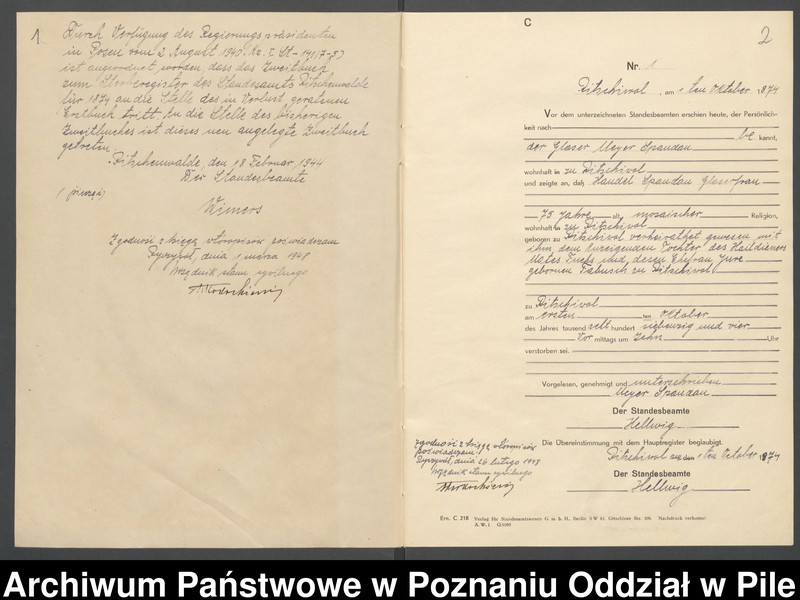 1
Durch Verfügung des Regierungspräsidenten
in Posen vom 2 August 1940. Nr. I St-141/7-3)
ist angeordnet worden, dass das Zweitbuch
zum Sterberegister des Standesamts Ritschenwalde
für 1874 an die Stelle des in Verlust geratenen
Erstbuch tritt. An die Stelle des bisherigen
Zweitbuches ist dieses neu angelegte Zweitbuch
getreten.
Ritschenwalde, den 18 Februar 1944
Der Standesbeamte
Wimers
Zgodność z księgą wtóropisów poświadczam
Ryczywół, dnia 1 marca 1948
Urzędnik stanu cywilnego
C
2
Nr. 1
Ritschiwol, am 1 ten Oktober 1874
Vor dem unterzeichneten Standesbeamten erschien heute, der Persönlich-
keit nach be kannt,
der Glaser Meyer Spandau
wohnhaft in zu Ritschivol
und zeigte an, daß Handel Spandau Glaserfrau
75 Jahre alt, mosaischer Religion,
wohnhaft in zu Ritschivol
geboren zu Ritschivol verheirathet gewesen mit
ihm, dem Anzeigenden Tochter des
und, desen Ehefrau
gebornen zu Ritschivol
zu Ritschivol
am ersten ten Oktober
des Jahres tausend acht hundert siebenzig und vier
Vor mittags um Zehn Uhr
verstorben sei.
Vorgelesen, genehmigt und unterschrieben
Meyer Spandau
Der Standesbeamte
Hellwig
Die Übereinstimmung mit dem Hauptregister beglaubigt.
Ritschivol den 1 ten October 1874
Der Standesbeamte
Hellwig
Zgodność z księgą wtóropisów
poświadczam!
Ryczywół, dnia 26 lutego 1948
Urzędnik stanu cywilnego
Ern. C 218 Verlag für Standesamtswesen G. m. b. H., Berlin SW 61, Gitschiner Str. 109. Nachdruck verboten!
A. W. I
Archiwum Państwowe w Poznaniu Oddział w Pile